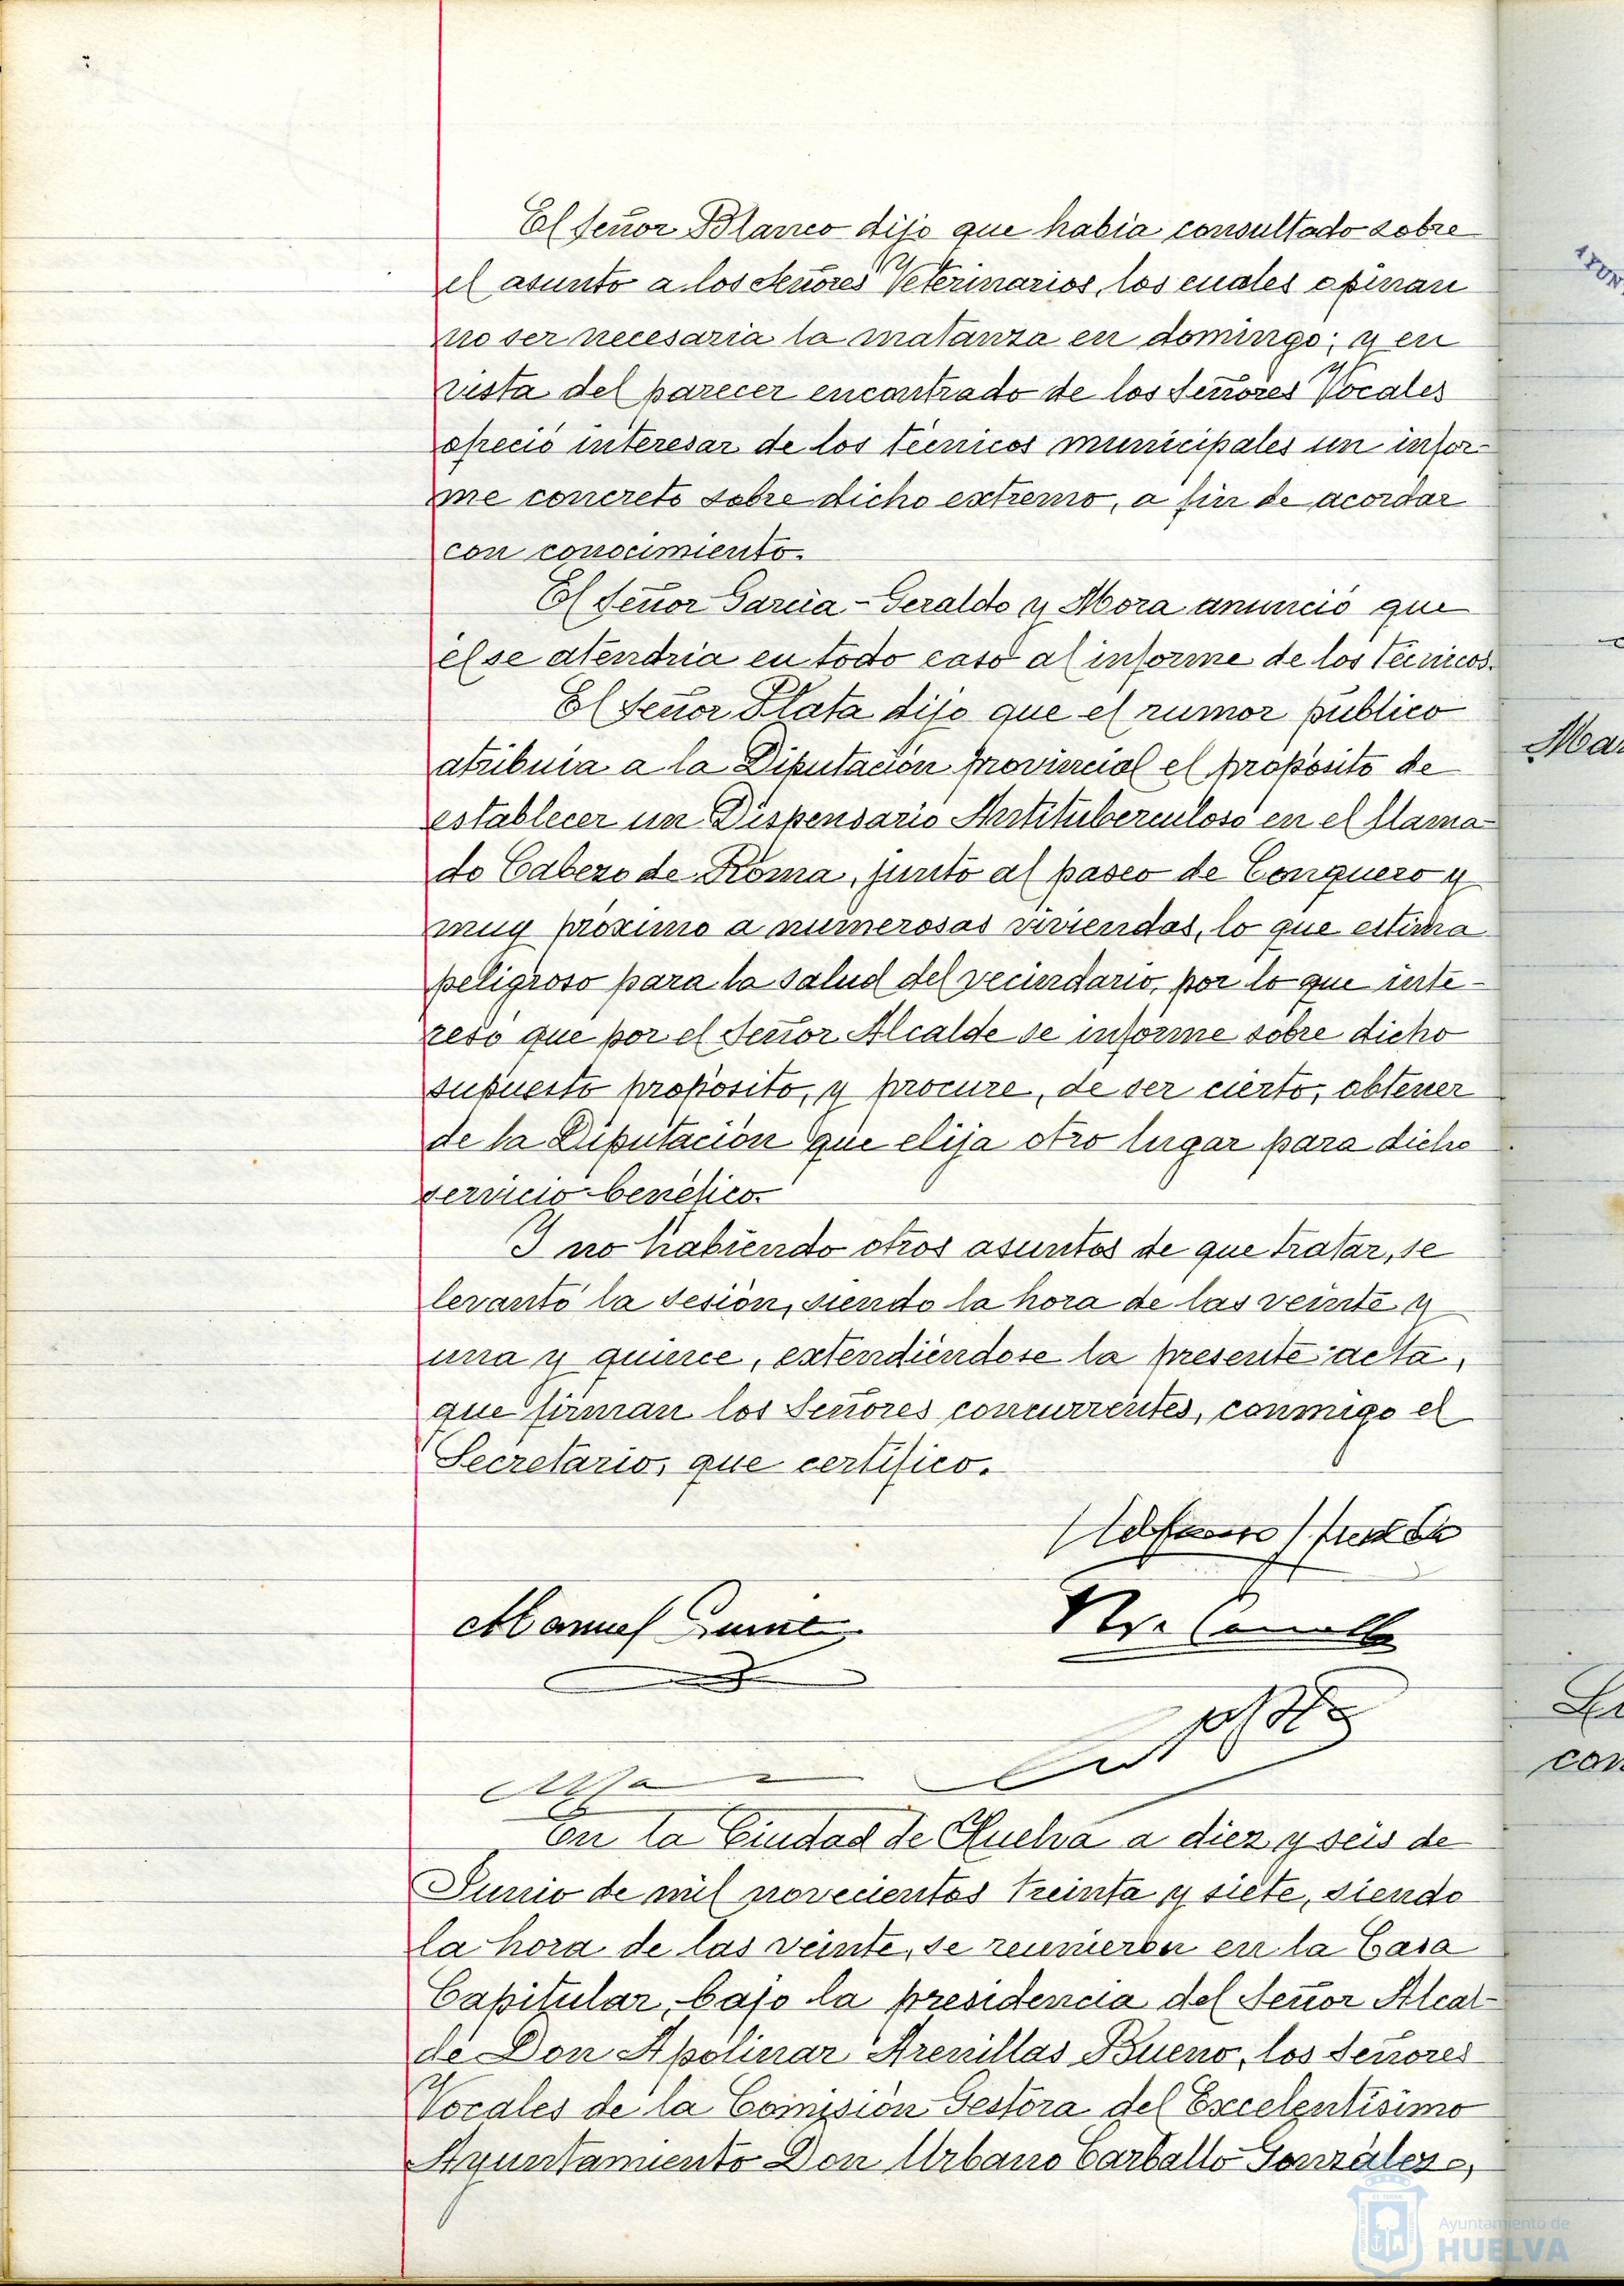 El Señor Blanco dijo que habia consultado sobre
el asunto a los Señores Veterinarios, los cuales opinan
no ser necesaria la matanza en domingo; y en
vista del parecer encontrado de los Señores Vocales
ofreció interesar de los técnicos municipales un infor-
me concreto sobre dicho extremo, a fin de acordar
con conocimiento.
El Señor Garcia-Geraldo y Mora anunció que
él se atendria en todo caso al informe de los Técnicos.
El Señor Plata dijo que el rumor público
atribuia a la Diputación Provincial el propósito de
establecer un Dispensario Antituberculoso en el llama-
do Cabezo de Roma, junto al paseo de Conquero y
muy próximo a numerosas viviendas, lo que estima
peligroso para la salud del vecindario, por lo que inte-
resó que por el Señor Alcalde se informe sobre dicho
supuesto propósito, y procure, de ser cierto, obtener
de la Diputación que elija otro lugar para dicho
servicio benéfico.
Y no habiendo otros asuntos de que tratar, se
levantó la sesión, siendo la hora de las veinte y
una y quince, extendiéndose la presente acta,
que firman los Señores concurrentes, conmigo el
Secretario, que certifico.
Manuel
En la Ciudad de Huelva a diez y seis de
Junio de mil novecientos treinta y siete, siendo
la hora de las veinte, se reunieron en la Casa
Capitular, bajo la presidencia del Señor Alcal-
de Don Apolinar Arenillas Bueno, los Señores
Vocales de la Comisión Gestora del Excelentísimo
Ayuntamiento Don Urbano Carballo González,
Ayuntamiento de
HUELVA